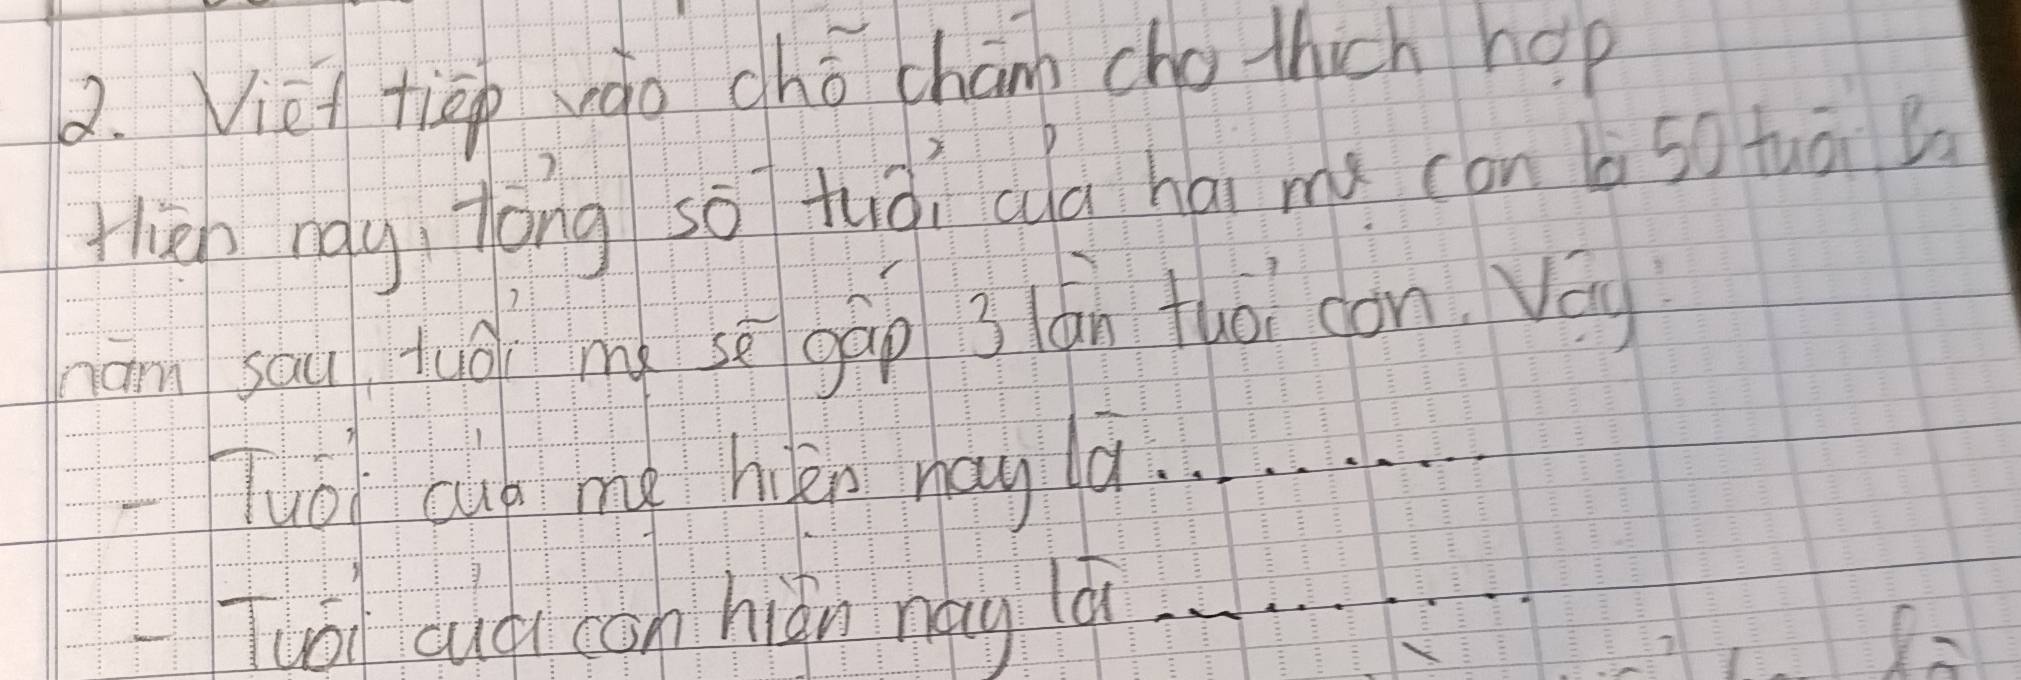 2. Viết tiếp vào chỗ chấm cho thích hợp
Hiện nay, tổng số tuổi của hai mẹ con là 50 tuổi Ba
năm sau, tuổi mẹ sẽ gấp 3 lần tuổi con. Vậy:
- Tuổi của mẹ hiện nay là...........
- Tuổi của con hiện nay là ...........